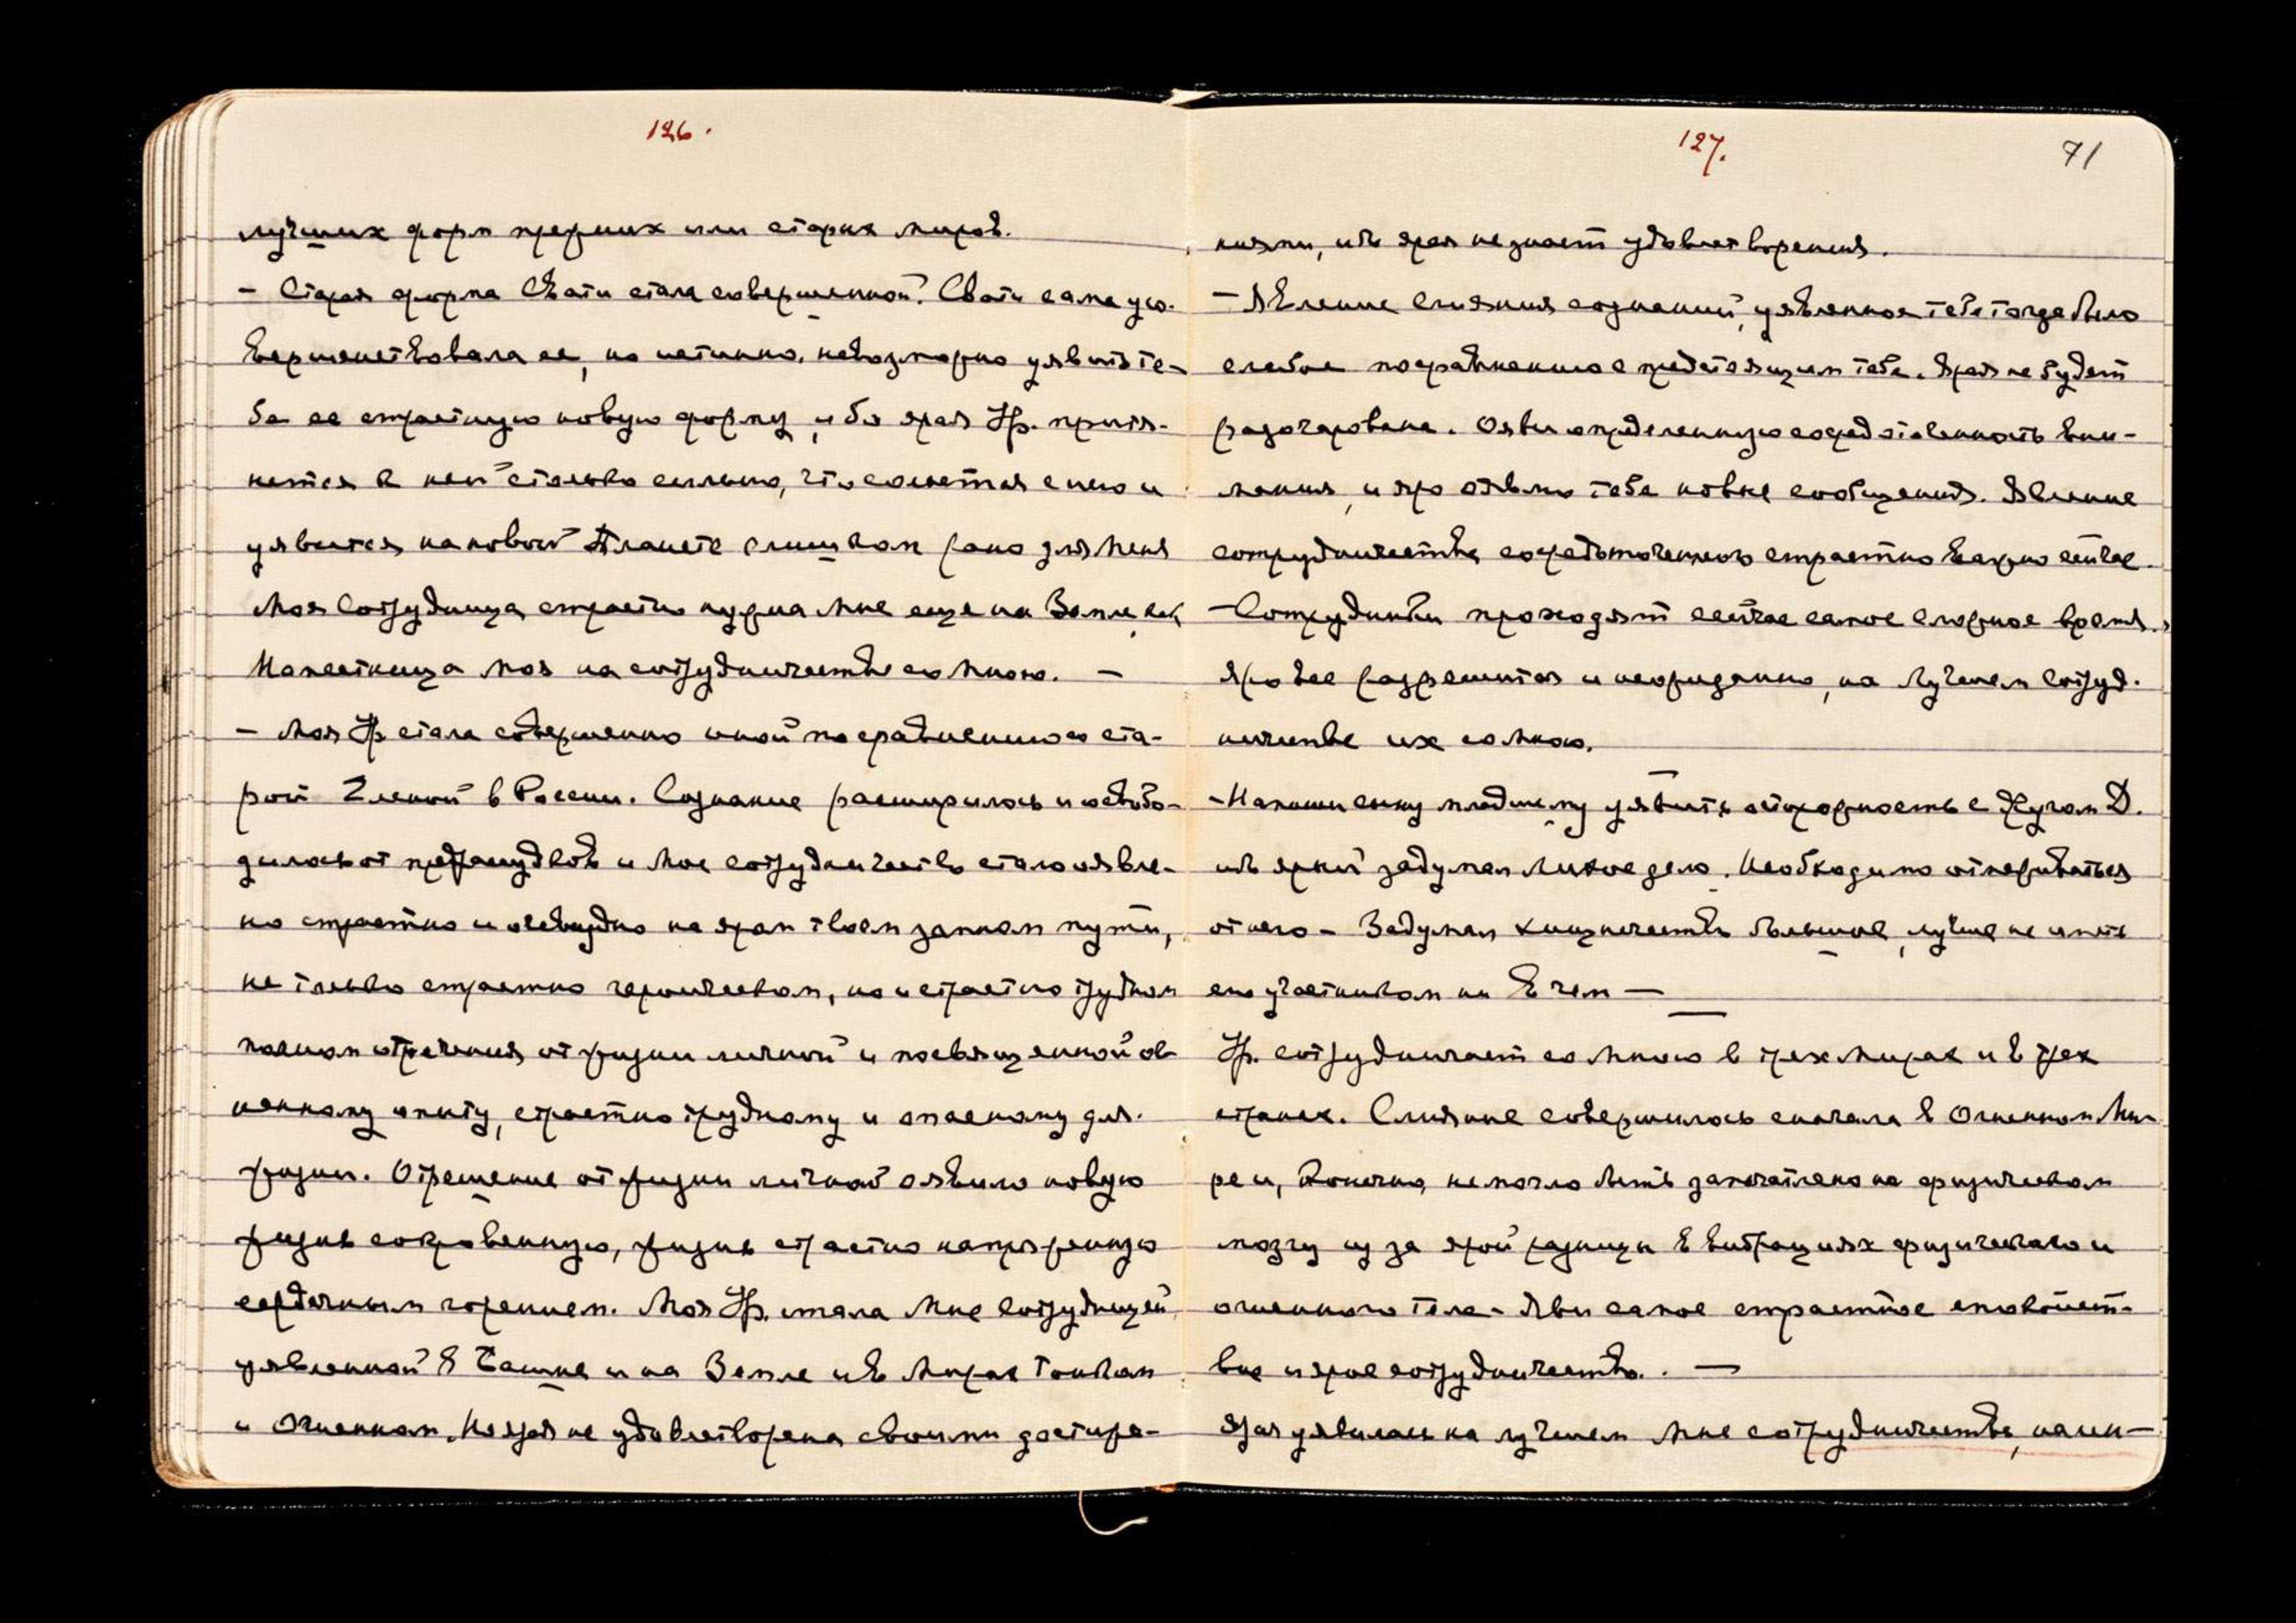 126.
лучших форм прежних или старых миров.
- Старая форма Свати стала совершенной. Свати сама усо-
вершенствовала ее, но истинно, невозможно уявить те-
бе ее страстную новую форму, ибо ярая Ур. притя-
нется к ней столько сильно, что сольется с нею и
уявится на новой Планете слишком рано для Меня
Моя Сотрудница страстно нужна Мне еще на Земле, как
Наместница Моя на сотрудничестве со Мною. —
- Моя Ур. стала совершенно иной по сравнению со ста-
рой Еленой в России. Сознание расширилось и освобо-
дилось от предрассудков и Мое сотрудничество стало оявле-
но страстно и очевидно на яром твоем земном пути,
не только страстно героическом, но и страстно трудном
полном отречения от жизни личной и посвященной ог-
ненному опыту, страстно трудному и опасному для
жизни. Отрешение от жизни личной оявило новую
жизнь сокровенную, жизнь страстно напряженную
сердечным горением. Моя Ур. стала Мне Сотрудницей
уявленной в Башне и на Земле и в Мирах Тонком
и Огненном. Но ярая не удовлетворена своими достиже-
127.
71
ниями, ибо ярая не знает удовлетворения.
- Явление слияния сознаний, уявленное тебе тогда было
слабое по сравнению с предстоящим тебе. Ярая не будет
разочарована. Ояви определенную сосредоточенность вни-
мания, и яро оявлю тебе новые сообщения. Явление
сотрудничества сосредоточенного страстно важно сейчас.
- Сотрудники проходят сейчас самое сложное время.
Яро все разрешится и неожиданно, на лучшем сотруд-
ничестве их со Мною.
- Напиши сыну младшему уявить осторожность с Д.
ибо яркий задумал лихое дело. Необходимо отмежеваться
от него - Задумал хищничество большое, лучше не иметь
его участником ни в чем —
Ур. сотрудничает со Мною в трех Мирах и в трех
странах. Слияние совершилось сначала в Огненном Ми-
ре и, конечно, не могло быть запечатлено на физическом
мозгу из за ярой разницы в вибрациях физического и
огненного тела - Яви самое страстное спокойст-
вие и ярое сотрудничество. —
Ярая уявилась на лучшем Мне сотрудничестве,